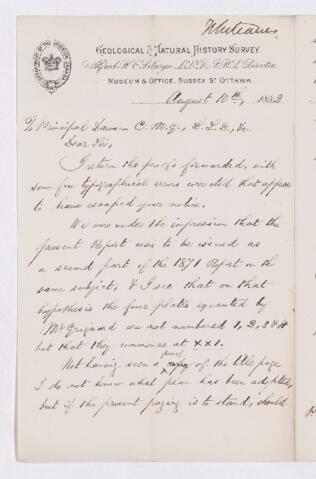 Whiteaves
GEOLOGICAL & NATURAL HISTORY SURVEY.
Alfred R. C. Selwyn, LL.D., F.R.S., Director.
MUSEUM & OFFICE, SUSSEX ST OTTAWA.
August 10th, 1882
To Principal Dawson C. M. G., L. L. D., &c.
Dear Sir,
I return the proofs forwarded, with
some few typographical errors corrected that appear
to have escaped your notice.
We were under the impression that the
present Report was to be issued as
a second part of the 1871 Report on the
same subject, & I see that on that
hypothesis the four plates executed by
Mr Grignard are not numbered 1, 2, 3 & 4
but that they commence at XXI.
Not having seen a proof of the title page
I do not know what plan has been adopted,
but if the present paging is to stand, should